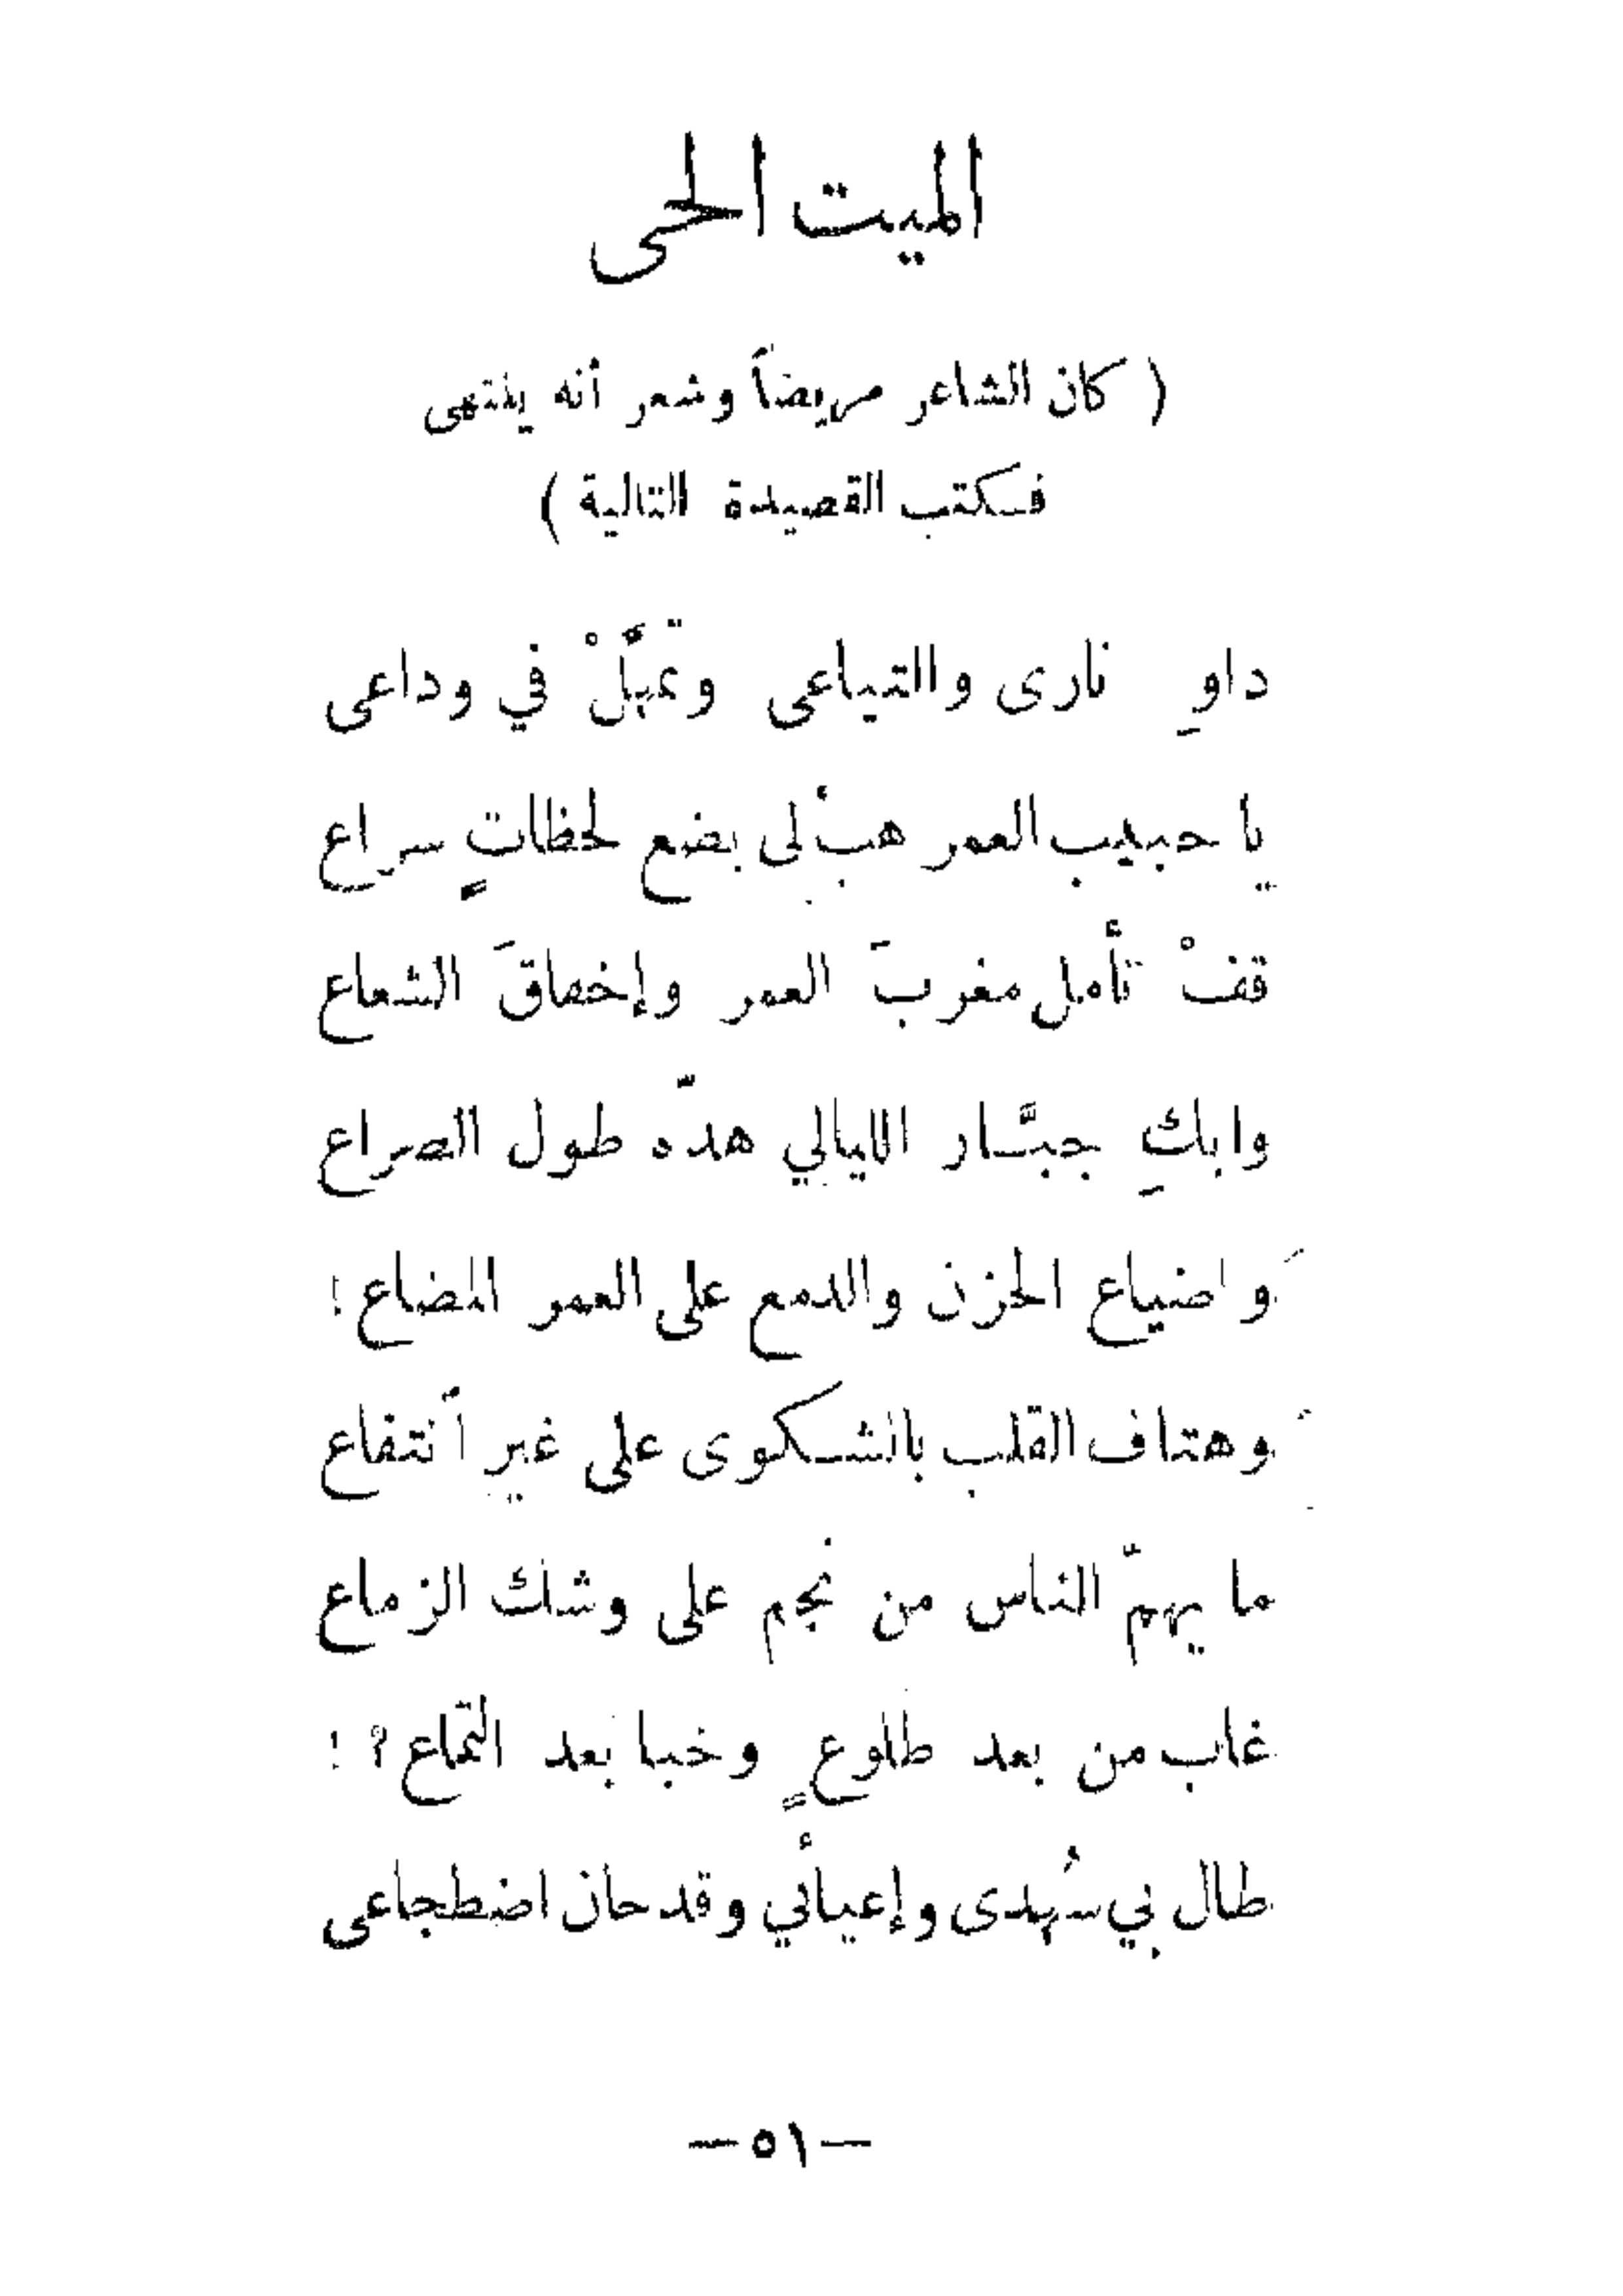 الميت الحى
( كان الشاعر مريضاً وشعر أنه ينتهى
فكتب القصيدة التالية )
داوِ نارى والتياعى وتمهَّلْ في وداعى
يا حبيب العمر هبْ لى بضع لحظاتٍ سراع
قفْ تأمل مغربَ العمر وإخفاقَ الشعاع
وابكِ جبَّار الليالي هدّه طول الصراع
واضياع الحزن والدمع على العمر المضاع !
وهتاف القلب بالشكوى على غير أنتفاع
ما يهمّ الناس من نجم على وشك الزماع
غاب من بعد طلوعٍ وخبا بعد التماع ؟ !
طال بي سُهدى وإعيائي وقد حان اضطجاعى
— ٥١ —